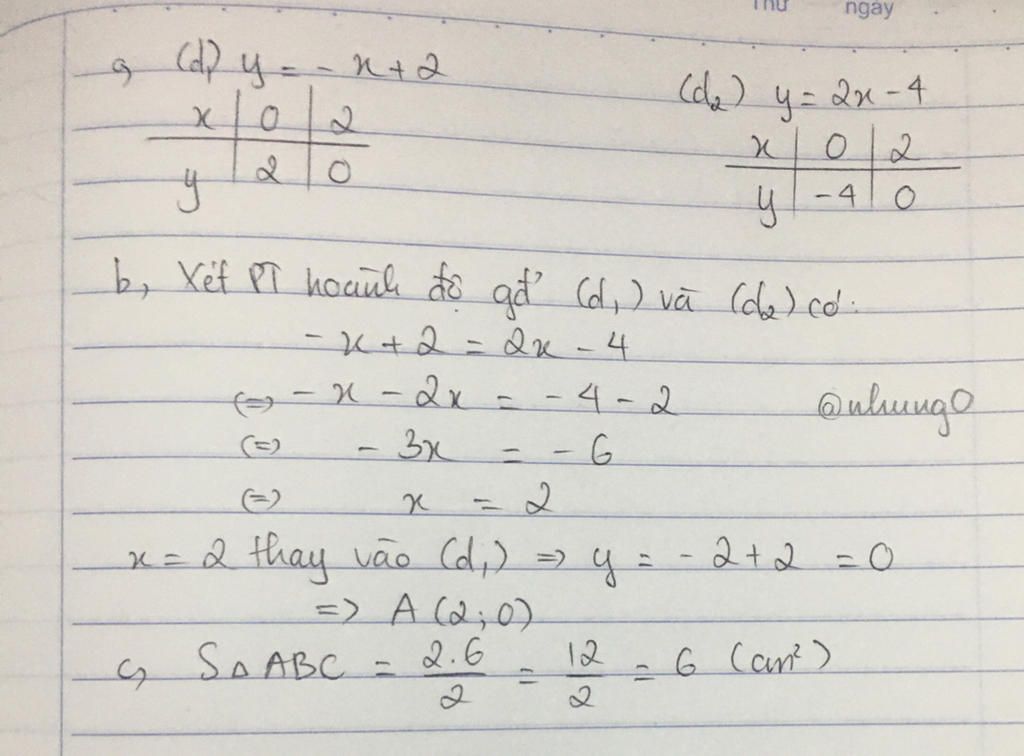 Thứ ngày
a, (d₁) y = - x + 2
x | 0 | 2
y | 2 | 0
(d₂) y = 2x - 4
x | 0 | 2
y | -4 | 0
b, Xét PT hoành độ gđ' (d₁) và (d₂) có:
- x + 2 = 2x - 4
(=) - x - 2x = - 4 - 2
@nhung0
(=) - 3x = - 6
(=) x = 2
x = 2 thay vào (d₁) => y = - 2 + 2 = 0
=> A (2; 0)
c, S△ABC = 2.6/2 = 12/2 = 6 (cm²)